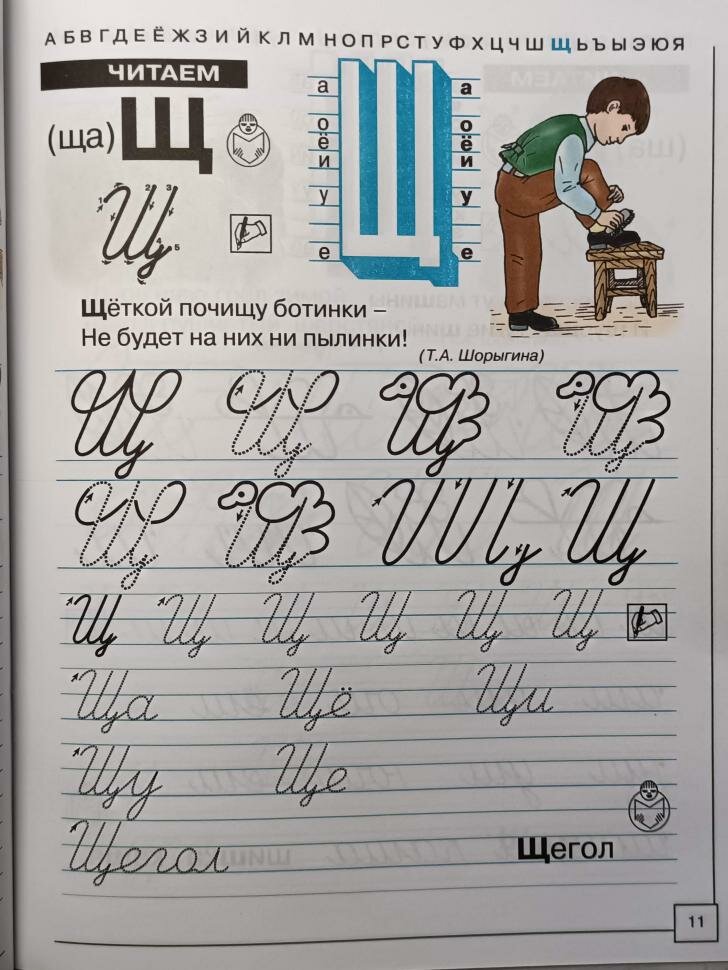 А Б В Г Д Е Ё Ж З И Й К Л М Н О П Р С Т У Ф Х Ц Ч Ш Щ Ь Ъ Ы Э Ю Я
ЧИТАЕМ
(ща) Щ
Щ
1 2 3 4 5
а Щ а
о о
ё ё
и и
у у
е е
Щёткой почищу ботинки –
Не будет на них ни пылинки!
(Т.А. Шорыгина)
Щ Щ Щ Щ
Щ Щ Щ Щ
Щ Щ Щ Щ Щ Щ
Ща Щё Щи
Щу Ще
Щегол Щегол
11